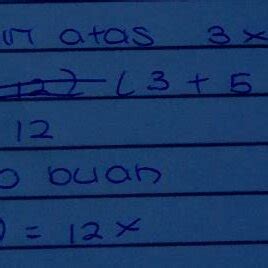 atas 3 x
( 3 + 5
12
buah
) = 12 x